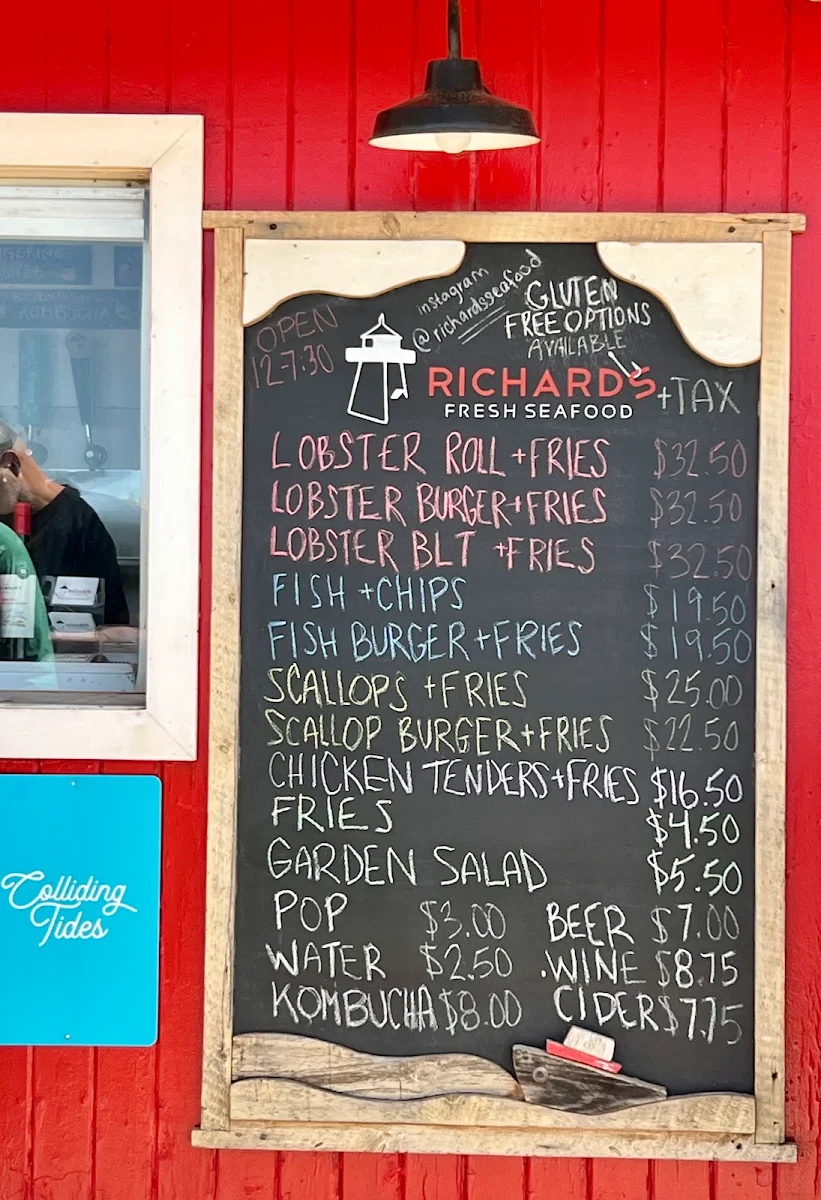 KOMBUCHA
instagram
@richardsseafood
GLUTEN
FREE OPTIONS
AVAILABLE
OPEN
12-7:30
RICHARDS
FRESH SEAFOOD
+TAX
LOBSTER ROLL +FRIES $32.50
LOBSTER BURGER+FRIES $32.50
LOBSTER BLT +FRIES $32.50
FISH +CHIPS $19.50
FISH BURGER+FRIES $19.50
SCALLOPS +FRIES $25.00
SCALLOP BURGER+FRIES $22.50
CHICKEN TENDERS+FRIES $16.50
FRIES $4.50
GARDEN SALAD $5.50
POP $3.00 BEER $7.00
WATER $2.50 WINE $8.75
KOMBUCHA $8.00 CIDER $7.75
Colliding
Tides